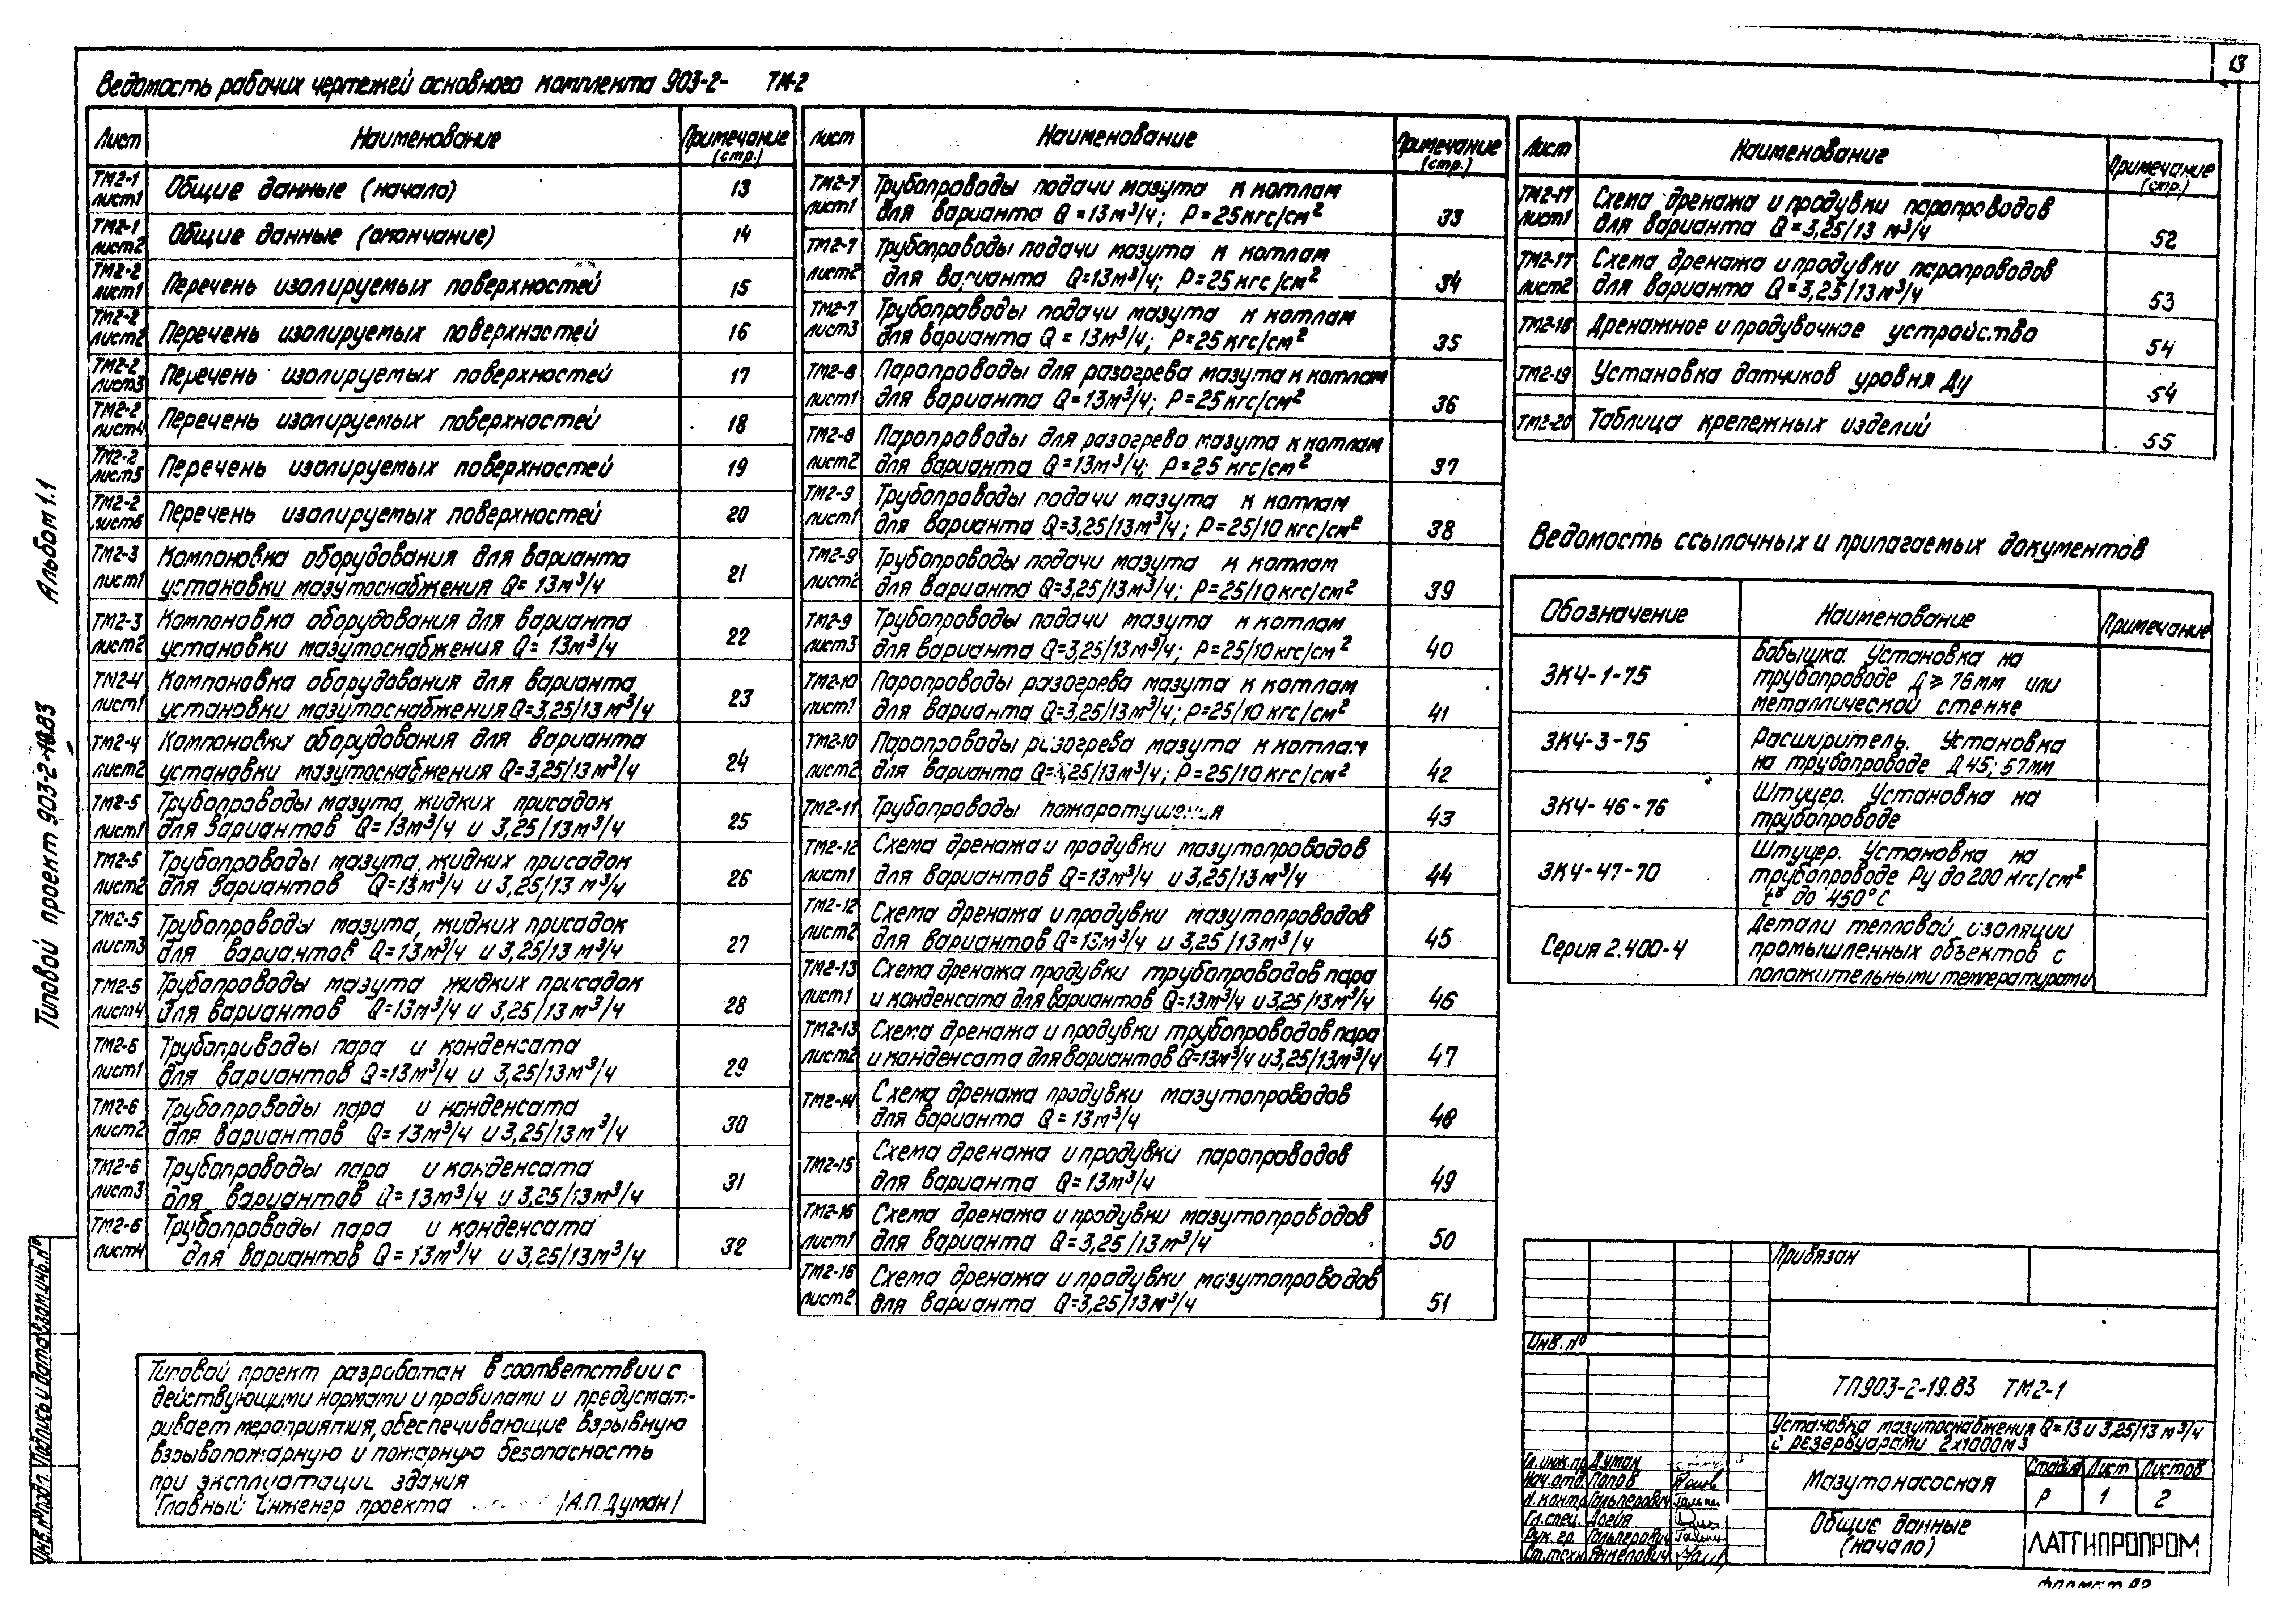 13
Ведомость рабочих чертежей основного комплекта 903-2- ТМ-2
Лист Наименование Примечание (стр.)
ТМ2-1 лист1 Общие данные (начало) 13
ТМ2-1 лист2 Общие данные (окончание) 14
ТМ2-2 лист1 Перечень изолируемых поверхностей 15
ТМ2-2 лист2 Перечень изолируемых поверхностей 16
ТМ2-2 лист3 Перечень изолируемых поверхностей 17
ТМ2-2 лист4 Перечень изолируемых поверхностей 18
ТМ2-2 лист5 Перечень изолируемых поверхностей 19
ТМ2-2 лист6 Перечень изолируемых поверхностей 20
ТМ2-3 Компоновка оборудования для варианта
лист1 установки мазутоснабжения Q= 13м³/ч 21
ТМ2-3 Компоновка оборудования для варианта
лист2 установки мазутоснабжения Q= 13м³/ч 22
ТМ2-4 Компоновка оборудования для варианта
лист1 установки мазутоснабжения Q=3,25/13 м³/ч 23
ТМ2-4 Компоновка оборудования для варианта
лист2 установки мазутоснабжения Q=3,25/13м³/ч 24
ТМ2-5 Трубопроводы мазута, жидких присадок
лист1 для вариантов Q=13м³/ч и 3,25/13м³/ч 25
ТМ2-5 Трубопроводы мазута, жидких присадок
лист2 для вариантов Q=13м³/ч и 3,25/13 м³/ч 26
ТМ2-5 Трубопроводы мазута, жидких присадок
лист3 для вариантов Q=13м³/ч и 3,25/13 м³/ч 27
ТМ2-5 Трубопроводы мазута жидких присадок
лист4 для вариантов Q=13м³/ч и 3,25/13м³/ч 28
ТМ2-6 Трубопроводы пара и конденсата
лист1 для вариантов Q=13м³/ч и 3,25/13м³/ч 29
ТМ2-6 Трубопроводы пара и конденсата
лист2 для вариантов Q= 13м³/ч и 3,25/13м³/ч 30
ТМ2-6 Трубопроводы пара и конденсата
лист3 для вариантов Q= 13м³/ч и 3,25/13м³/ч 31
ТМ2-6 Трубопроводы пара и конденсата
лист4 для вариантов Q= 13м³/ч и 3,25/13м³/ч 32
Лист Наименование Примечание (стр.)
ТМ2-7 Трубопроводы подачи мазута к котлам
лист1 для варианта Q=13м³/ч; Р=25кгс/см² 33
ТМ2-7 Трубопроводы подачи мазута к котлам
лист2 для варианта Q=13м³/ч; Р=25кгс/см² 34
ТМ2-7 Трубопроводы подачи мазута к котлам
лист3 для варианта Q = 13м³/ч; Р=25кгс/см² 35
ТМ2-8 Паропроводы для разогрева мазута к котлам
лист1 для варианта Q=13м³/ч; Р=25кгс/см² 36
ТМ2-8 Паропроводы для разогрева мазута к котлам
лист2 для варианта Q=13м³/ч; Р=25 кгс/см² 37
ТМ2-9 Трубопроводы подачи мазута к котлам
лист1 для варианта Q=3,25/13м³/ч; Р=25/10 кгс/см² 38
ТМ2-9 Трубопроводы подачи мазута к котлам
лист2 для варианта Q=3,25/13м³/ч; Р=25/10кгс/см² 39
ТМ2-9 Трубопроводы подачи мазута к котлам
лист3 для варианта Q=3,25/13м³/ч; Р=25/10кгс/см² 40
ТМ2-10 Паропроводы разогрева мазута к котлам
лист1 для варианта Q=3,25/13м³/ч; Р=25/10 кгс/см² 41
ТМ2-10 Паропроводы разогрева мазута к котлам
лист2 для варианта Q=3,25/13м³/ч; Р=25/10кгс/см² 42
ТМ2-11 Трубопроводы пожаротушения 43
ТМ2-12 Схема дренажа и продувки мазутопроводов
лист1 для вариантов Q=13м³/ч и 3,25/13м³/ч 44
ТМ2-12 Схема дренажа и продувки мазутопроводов
лист2 для вариантов Q=13м³/ч и 3,25/13м³/ч 45
ТМ2-13 Схема дренажа продувки трубопроводов пара
лист1 и конденсата для вариантов Q=13м³/ч и 3,25/13м³/ч 46
ТМ2-13 Схема дренажа и продувки трубопроводов пара
лист2 и конденсата для вариантов Q=13м³/ч и 3,25/13м³/ч 47
ТМ2-14 Схема дренажа продувки мазутопроводов
для варианта Q=13м³/ч 48
ТМ2-15 Схема дренажа и продувки паропроводов
для варианта Q=13м³/ч 49
ТМ2-16 Схема дренажа и продувки мазутопроводов
лист1 для варианта Q=3,25/13м³/ч 50
ТМ2-16 Схема дренажа и продувки мазутопроводов
лист2 для варианта Q=3,25/13м³/ч 51
Лист Наименование Примечание (стр.)
ТМ2-17 Схема дренажа и продувки паропроводов
лист1 для варианта Q=3,25/13 м³/ч 52
ТМ2-17 Схема дренажа и продувки паропроводов
лист2 для варианта Q=3,25/13м³/ч 53
ТМ2-18 Дренажное и продувочное устройство 54
ТМ2-19 Установка датчиков уровня Ду 54
ТМ2-20 Таблица крепежных изделий 55
Ведомость ссылочных и прилагаемых документов
Обозначение Наименование Примечание
ЗК4-1-75 Бобышка. Установка на
трубопроводе Д ≥ 76мм или
металлической стенке
ЗК4-3-75 Расширитель. Установка
на трубопроводе Д 45; 57мм
ЗК4-46-76 Штуцер. Установка на
трубопроводе
ЗК4-47-70 Штуцер. Установка на
трубопроводе Ру до 200 кгс/см²
t° до 450°С
Серия 2.400-4 Детали тепловой изоляции
промышленных объектов с
положительными температурами
Типовой проект разработан в соответствии с
действующими нормами и правилами и предусмат-
ривает мероприятия, обеспечивающие взрывную
взрывопожарную и пожарную безопасность
при эксплуатации здания
Главный инженер проекта /А.П.Думан/
Типовой проект 903-2-19.83 Альбом 1.1
Инв.№подл. Подпись и дата Взам.инв.№
Привязан
Инв.№
ТП903-2-19.83 ТМ2-1
Установка мазутоснабжения Q=13 и 3,25/13 м³/ч
с резервуарами 2х1000м3
Гл.инж.пр. Думан
Нач.отд. Попов
Н.контр. Гальперович
Гл.спец.
Рук.гр. Гальперович
Ст.техн. Янкелович
Мазутонасосная
Стадия Лист Листов
Р 1 2
Общие данные
(начало)
ЛАТГИПРОПРОМ
Формат А2